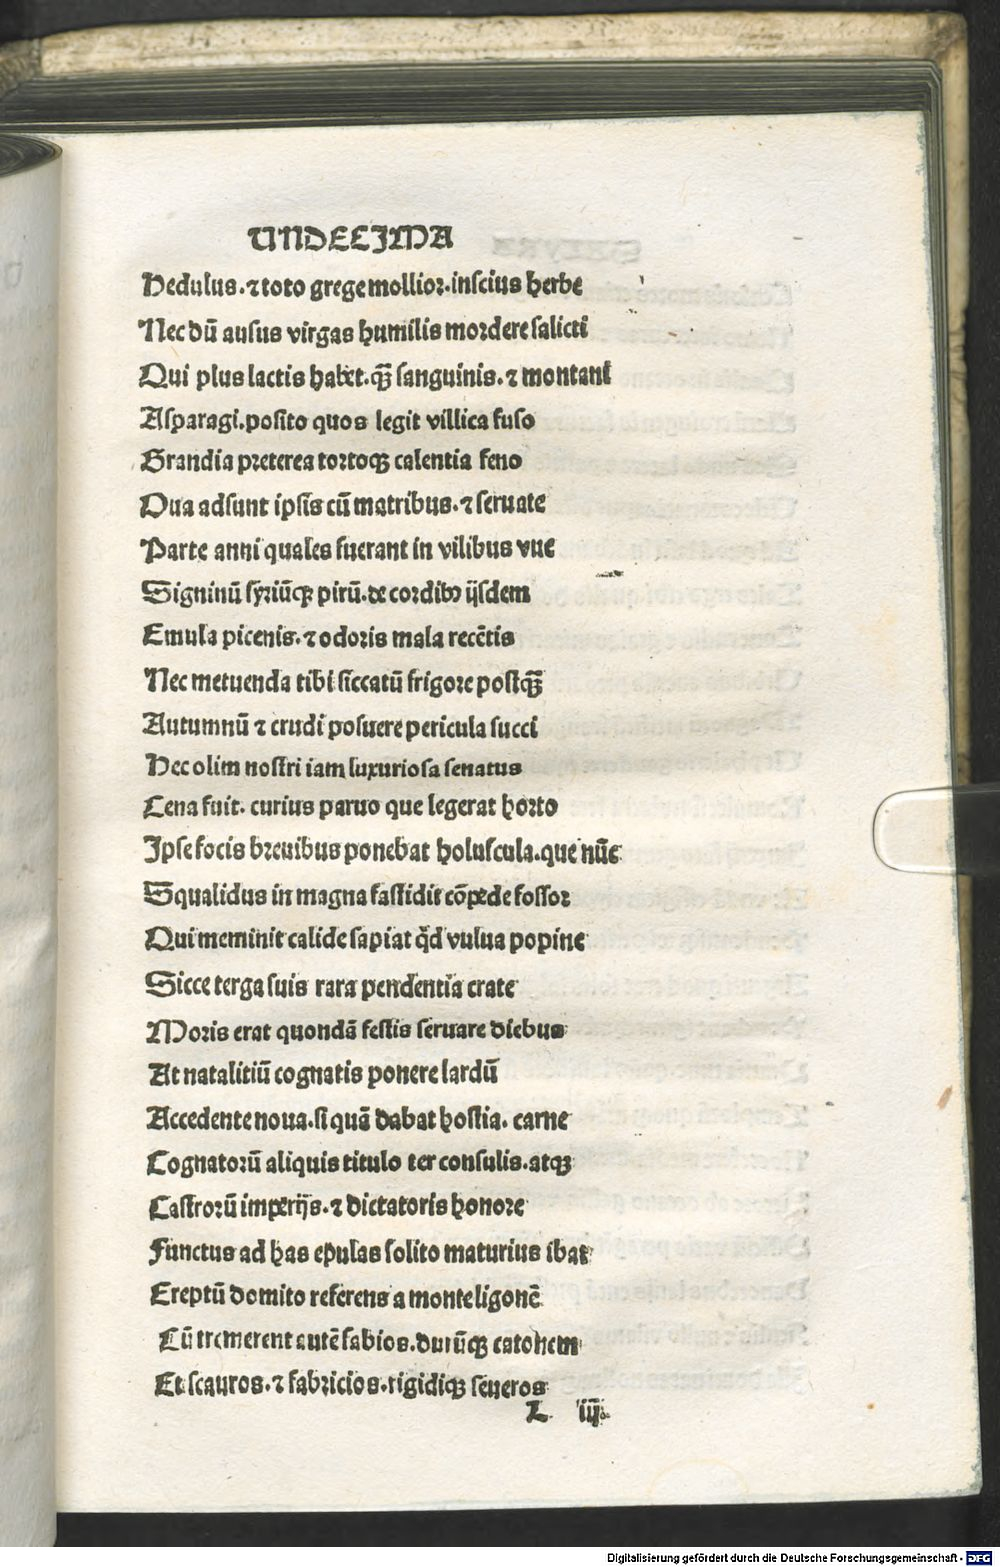 UNDECIMA
Hedulus. ⁊ toto grege mollior. inscius herbe
Nec dū ausus virgas humilis mordere salicti
Qui plus lactis habet. qꝫ̄ sanguinis. ⁊ montani
Asparagi. posito quos legit villica fuso
Grandia preterea tortoqꝫ calentia feno
Oua adsunt ipsis cū matribus. ⁊ seruate
Parte anni quales fuerant in vilibus vue
Signinū syriūqꝫ pirū. de cordibꝰ ijsdem
Emula picenis. ⁊ odoris mala recētis
Nec metuenda tibi siccatū frigore postqꝫ̄
Autumnū ⁊ crudi posuere pericula succi
Hec olim nostri iam luxuriosa senatus
Cena fuit. curius paruo que legerat horto
Ipse focis breuibus ponebat holuscula. que nūc
Squalidus in magna fastidit cōpede fossor
Qui meminit calide sapiat qd̄ vulua popine
Sicce terga suis rara pendentia crate
Moris erat quondā festis seruare diebus
At natalitiū cognatis ponere lardū
Accedente noua. si quā dabat hostia. carne
Cognatorū aliquis titulo ter consulis. atqꝫ
Castrorū imperijs. ⁊ dictatoris honore
Functus ad has epulas solito maturius ibat
Ereptū domito referens a monte ligonē
Cū tremerent autē fabios. durūqꝫ catonem
Et scauros. ⁊ fabricios. rigidiqꝫ seueros
L iij
Digitalisierung gefördert durch die Deutsche Forschungsgemeinschaft - DFG